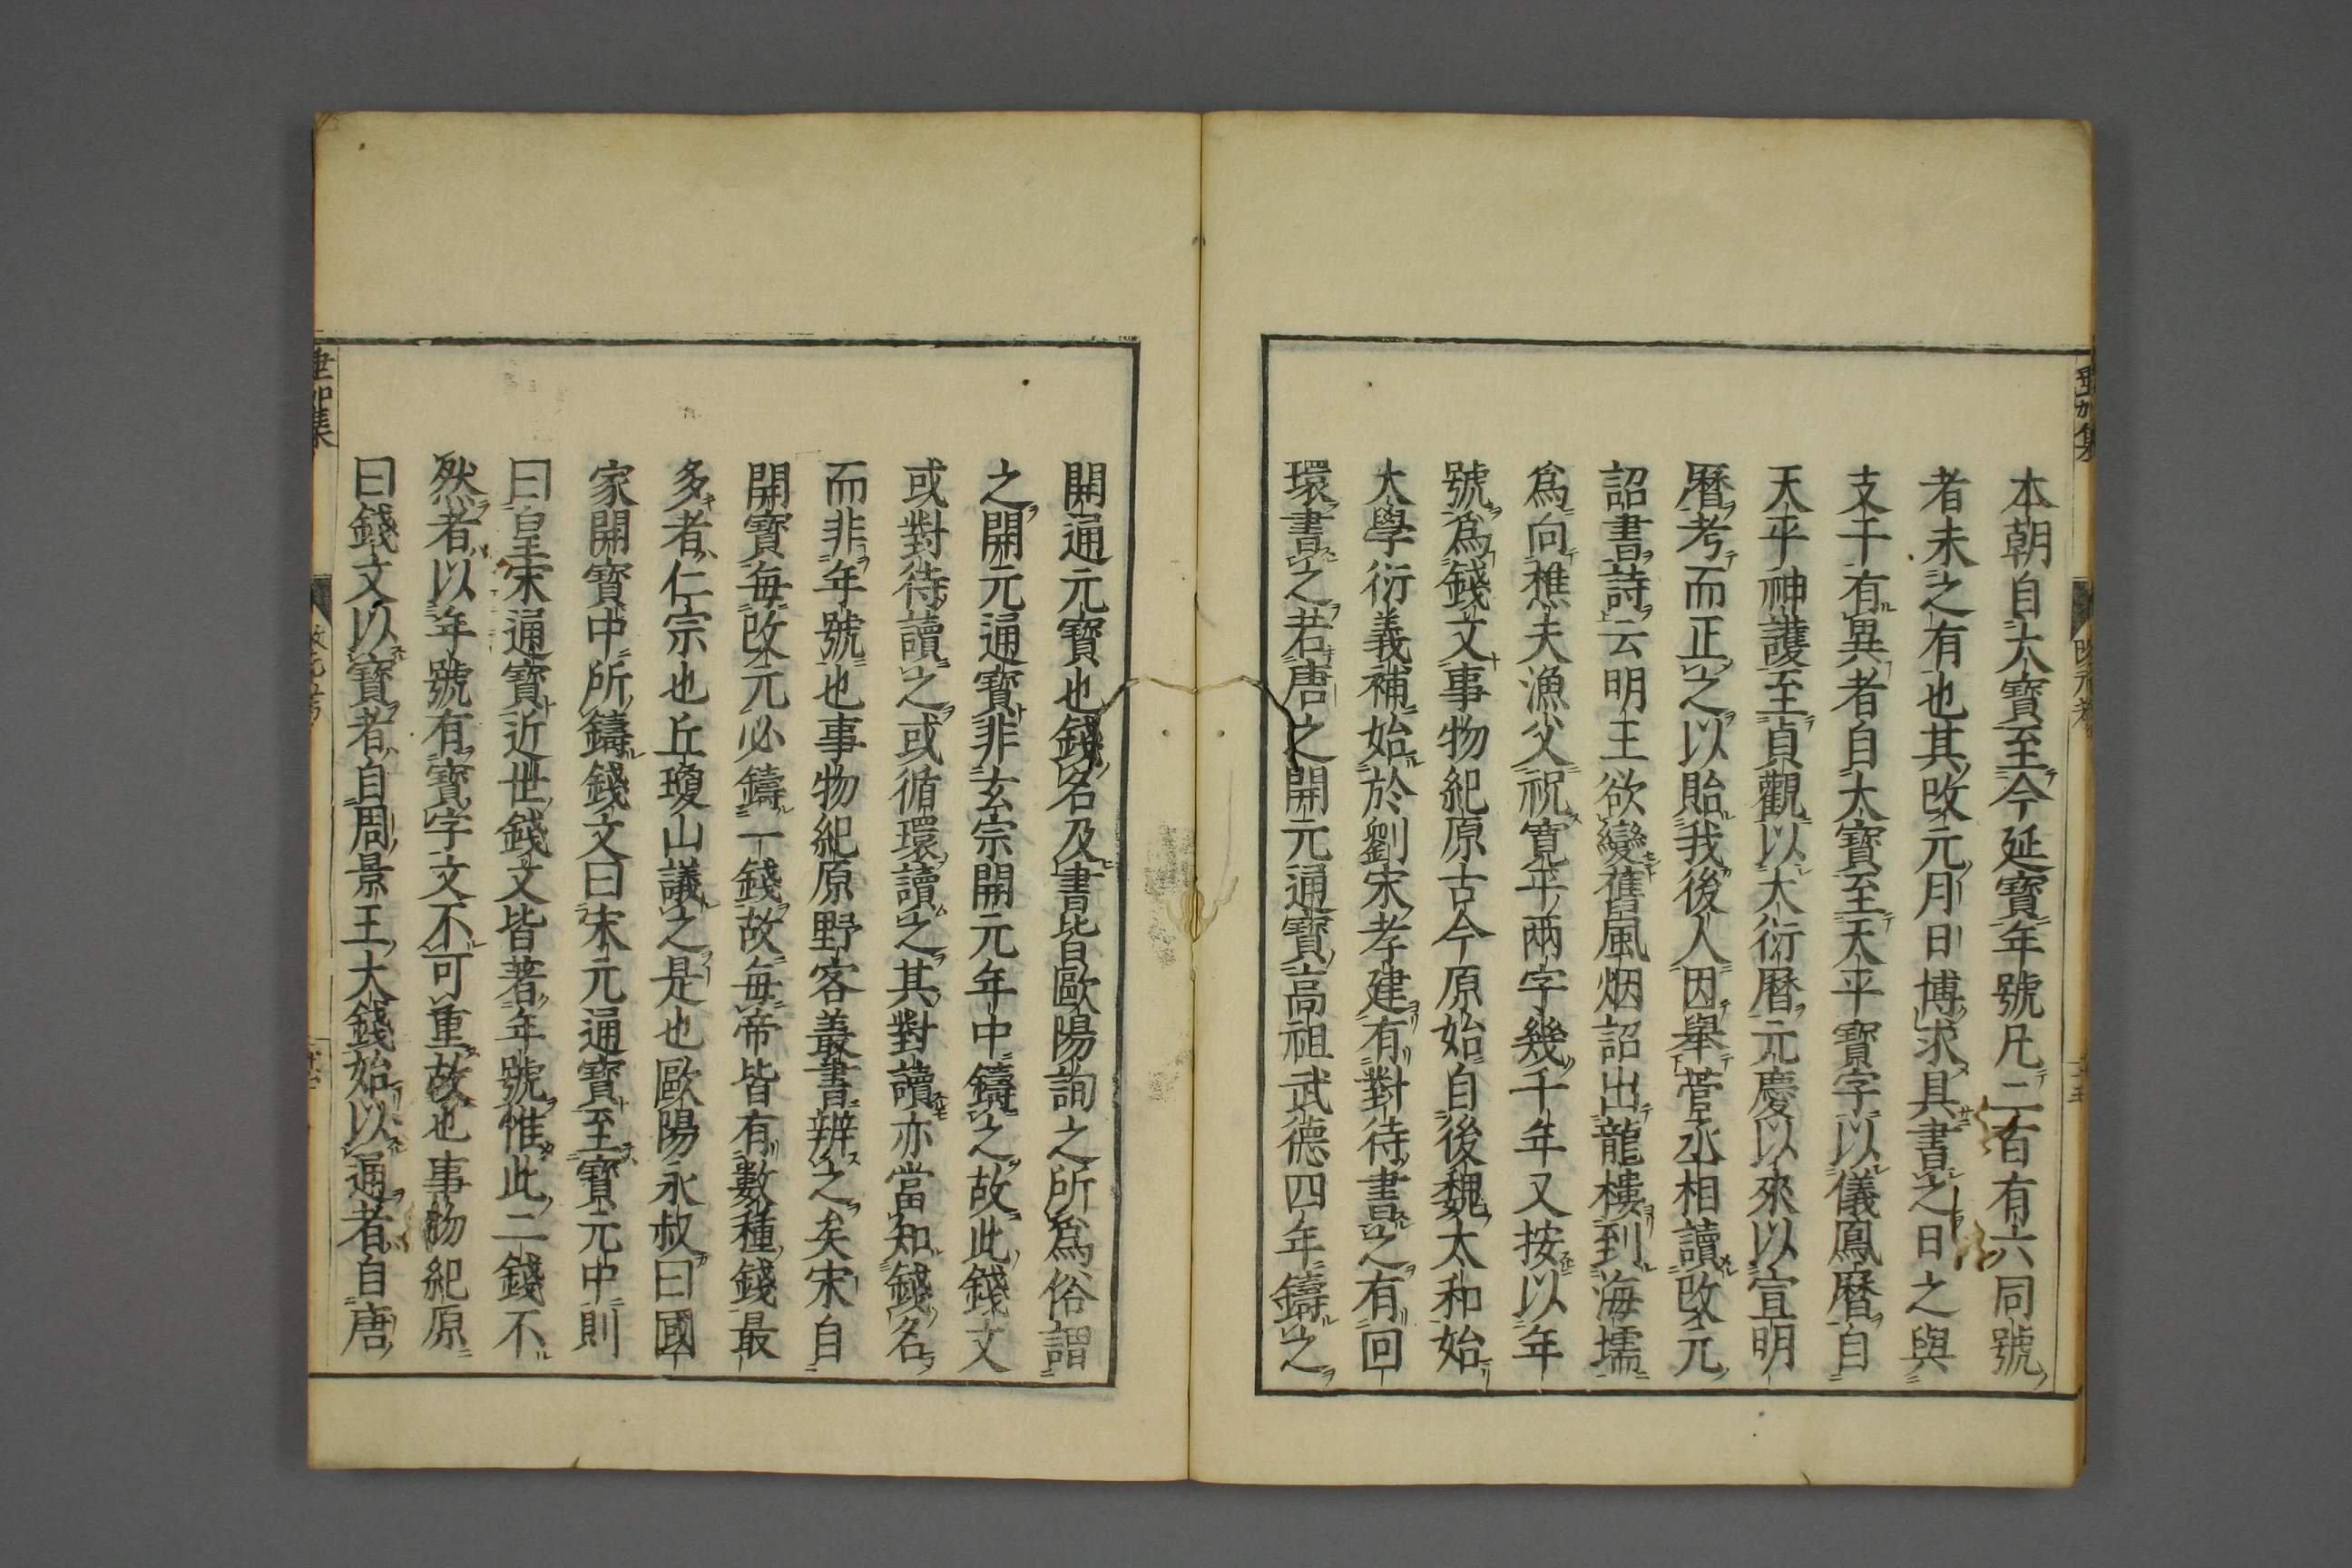 本朝自大寶至今延寶年號凡二百有六同號
者未之有也其改元月日博求具書之日之與
支干有異者自大寶至天平寶字以儀鳳曆自
天平神護至貞觀以大衍曆元慶以來以宣明
曆考而正之以貽我後人因舉菅丞相讀改元
詔書詩云明王欲變舊風烟詔出龍樓到海壖
爲向樵夫漁父祝寬平兩字幾千年又按以年
號爲錢文事物紀原古今原始自後魏太和始
大學衍義補始於劉宋孝建有對待書之有回
環書之若唐之開元通寶高祖武德四年鑄之
開通元寶也錢名及書皆歐陽詢之所爲俗謂
之開元通寶非玄宗開元年中鑄之故此錢文
或對待讀之或循環讀之其對讀亦當知錢名
而非年號也事物紀原野客叢書辨之矣宋自
開寶每改元必鑄一錢故每帝皆有數種錢最
多者仁宗也丘瓊山議之是也歐陽永叔曰國
家開寶中所鑄錢文曰宋元通寶至寶元中則
曰皇宋通寶近世錢文皆著年號惟此二錢不
然者以年號有寶字文不可重故也事物紀原
曰錢文以寶者自周景王大錢始以通者自唐
垂加集
改元考